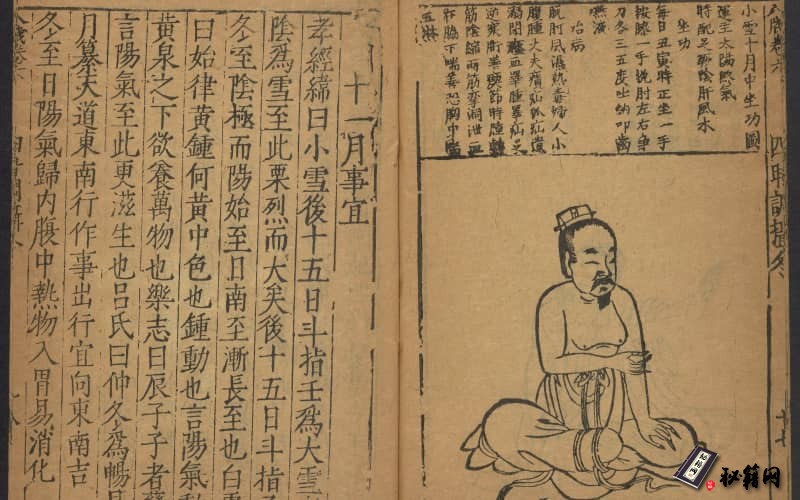 小雪十月中坐功圖
運主太陽終氣
時配足厥陰肝風木
坐功
每日丑寅時正坐一手
按膝一手挽肘左右爭
力各三五度吐納叩齒
嚥液
治病
脫肘風濕熱毒婦人小
腹腫丈夫㿉疝狐疝遺
溺閉癃血睪腫睪疝足
逆寒胻善瘈節時腫轉
筋陰縮兩筋攣洞泄血
在脇下喘善恐胸中喘
五淋
四時調攝冬
十七
十一月事宜
孝經緯曰小雪後十五日斗指壬爲大雪
陰爲雪至此栗烈而大矣後十五日斗指
冬至陰極而陽始至日南至漸長至也白
曰始律黃鍾何黃中色也鍾動也言陽氣
黃泉之下欲養萬物也樂志曰辰子子者
言陽氣至此更滋生也呂氏曰仲冬爲暢
月纂天道東南行作事出行宜向東南吉
冬至日陽氣歸內腹中熱物入胃易消化
秘籍网